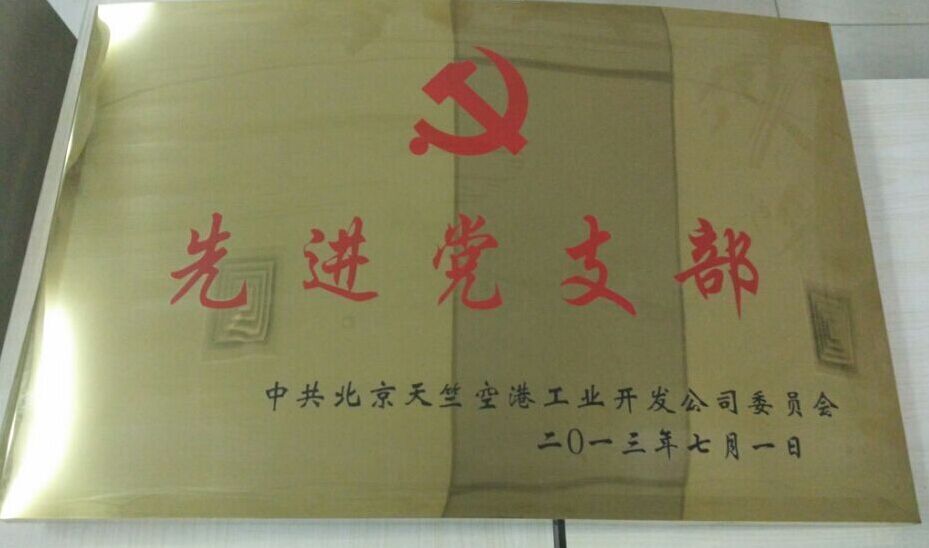 先进党支部
中共北京天竺空港工业开发公司委员会
二〇一三年七月一日